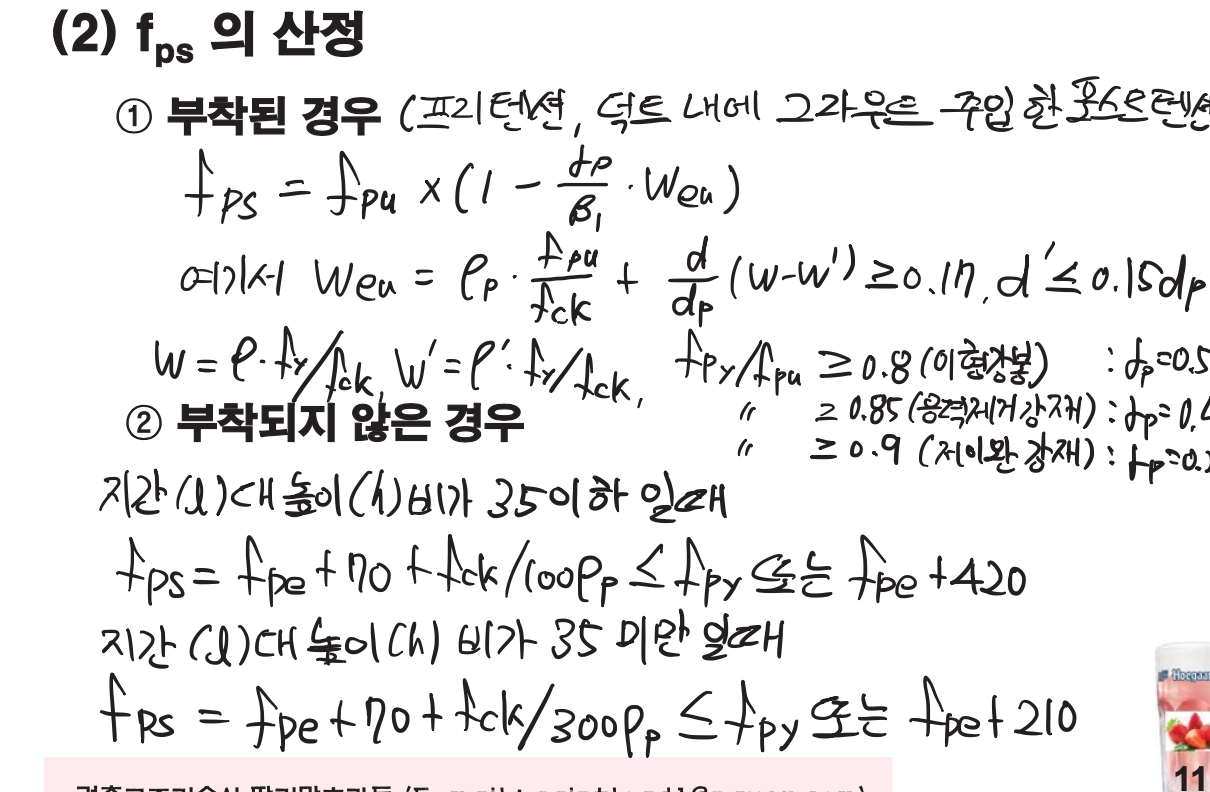 (2) fps 의 산정
① 부착된 경우 (프리텐션, 덕트 내에 그라우트 주입 한 포스트텐션
fps = fpu × (1 - γp/β1 · Weu)
여기서 Weu = ρp · fpu/fck + d/dp (w-w') ≥ 0.17, d' ≤ 0.15dp
W = ρ·fy/fck, W' = ρ'·fy/fck, fpy/fpu ≥ 0.8 (이형강봉) : γp=0.5
〃 ≥ 0.85 (응력제거강재) : γp= 0.4
② 부착되지 않은 경우
〃 ≥ 0.9 (저이완 강재) : γp=0.2
지간(l)대 높이(h)비가 35이하 일때
fps = fpe + 70 + fck/100ρp ≤ fpy 또는 fpe +420
지간(l)대 높이(h) 비가 35 미만 일때
fps = fpe + 70 + fck/300ρp ≤ fpy 또는 fpe + 210
Hoegaa
11